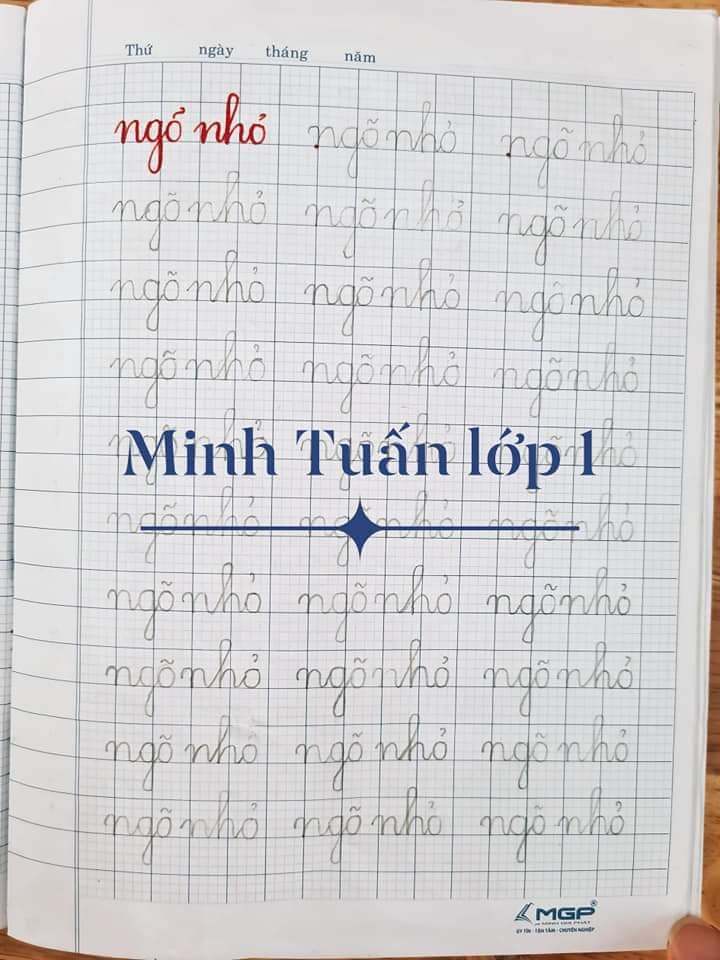 Thứ ngày tháng năm
ngõ nhỏ ngõ nhỏ ngõ nhỏ
ngõ nhỏ ngõ nhỏ ngõ nhỏ
ngõ nhỏ ngõ nhỏ ngõ nhỏ
ngõ nhỏ ngõ nhỏ ngõ nhỏ
Minh Tuấn lớp 1
ngõ nhỏ ngõ nhỏ ngõ nhỏ
ngõ nhỏ ngõ nhỏ ngõ nhỏ
ngõ nhỏ ngõ nhỏ ngõ nhỏ
ngõ nhỏ ngõ nhỏ ngõ nhỏ
ngõ nhỏ ngõ nhỏ ngõ nhỏ
MGP
UY TÍN - TẬN TÂM - CHUYÊN NGHIỆP